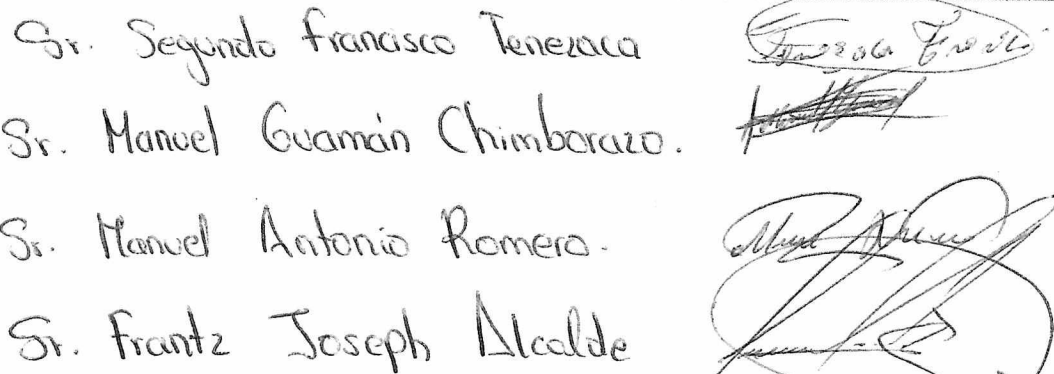 Sr. Segundo Francisco Tenezaca
Sr. Manuel Guamán Chimborazo.
Sr. Manuel Antonio Romero.
Sr. Frantz Joseph Alcalde